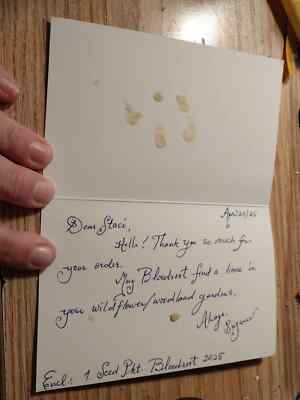 Apr/29/25
Dear Staci,
Hello! Thank you so much for
your order.
May Bloodroot find a home in
your wildflower/woodland gardens.
Always,
Encl: 1 Seed Pkt. Bloodroot 2025